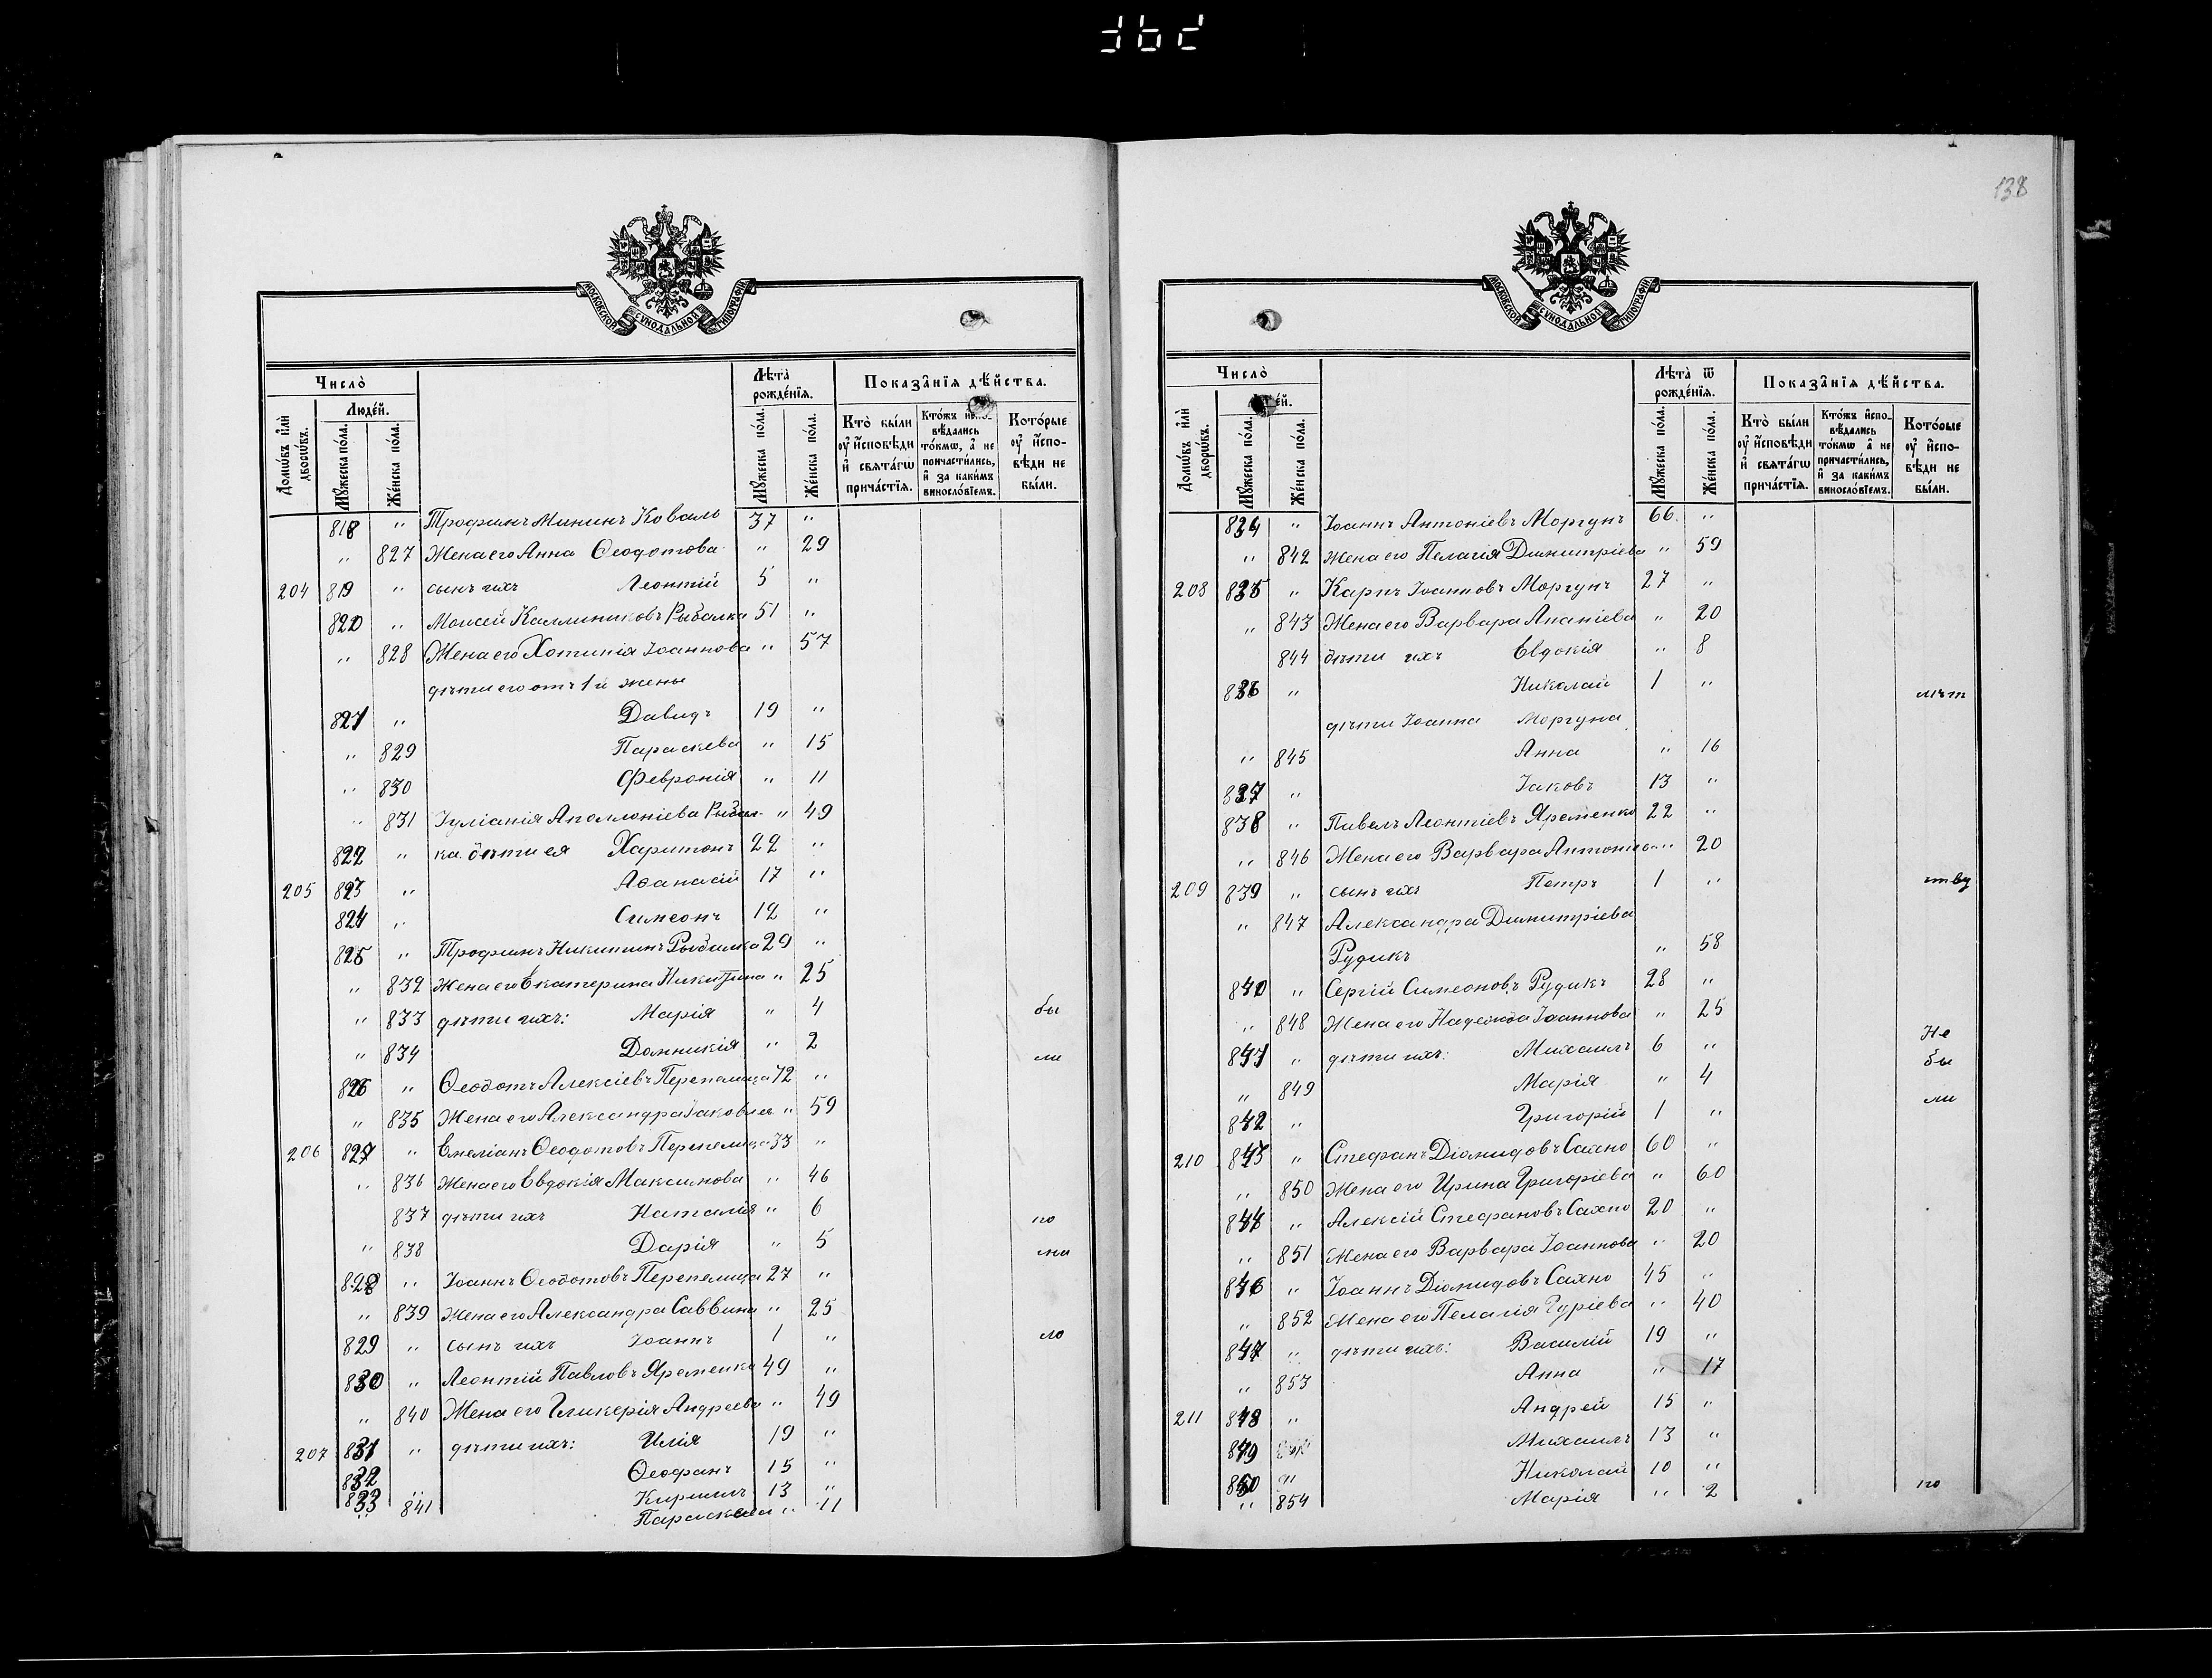 138
МОСКОВСКОЙ СѴНОДАЛЬНОЙ ТИПОГРАФІИ
Число̀
Домѡ́въ и҆лѝ дворѡ́въ.
Люде́й.
Мꙋ́жеска по́ла.
Же́нска по́ла.
Лѣта̀ рожде́нїѧ.
Мꙋ́жеска по́ла.
Же́нска по́ла.
Показа̑нїѧ дѣ́йства.
Кто̀ бы́ли оу҆ и҆сповѣди и҆ свята́гѡ прича́стїѧ.
Кто́жъ и҆спо- вѣ́дались то́кмѡ, а҆ не причасти́лись, и҆ за каки́мъ винослóвїемъ.
Кото́рые оу҆ и҆спо- вѣди не бы́ли.
818 " Трофимъ Мининъ Коваль 37 "
" 827 Жена его Анна Ѳеодотова " 29
204 819 " сынъ ихъ Леонтій 5 "
820 " Моисей Каллиниковъ Рыбалка 51 "
" 828 Жена его Хотинія Іоаннова " 57
дѣти его отъ 1й жены
821 " Давидъ 19 "
" 829 Параскева " 15
" 830 Февронія " 11
" 831 Іуліанія Аполлоніева Рыбал- " 49
822 " ка. дѣти ея Харитонъ 22 "
205 823 " Аѳанасій 17 "
824 " Симеонъ 12 "
825 " Трофимъ Никитинъ Рыбалка 29 "
" 832 Жена его Екатерина Никитина " 25
" 833 дѣти ихъ: Марія " 4 бы
" 834 Домникія " 2 ли
826 " Ѳеодотъ Алексіевъ Перепелица 72 "
" 835 Жена его Александра Іаковлев " 59
206 827 " Емеліанъ Ѳеодотовъ Перепелица 33 "
" 836 Жена его Евдокія Максимова " 46
837 дѣти ихъ Наталія " 6 по
" 838 Дарія " 5
828 " Іоаннъ Ѳеодотовъ Перепелица 27 "
" 839 Жена его Александра Саввина " 25
829 " сынъ ихъ Іоаннъ 1 " ло
830 " Леонтій Павловъ Яременко 49 "
" 840 Жена его Гликерія Андреева " 49
207 831 " дѣти ихъ: Илія 19 "
832 Ѳеофанъ 15 "
833 " Кириллъ 13 "
" 841 Параскева " 11
МОСКОВСКОЙ СѴНОДАЛЬНОЙ ТИПОГРАФІИ
Число̀
Домѡ́въ и҆лѝ дворѡ́въ.
Мꙋ́жеска по́ла.
Же́нска по́ла.
Лѣта̀ ѿ рожде́нїѧ.
Мꙋ́жеска по́ла.
Же́нска по́ла.
Показа̑нїѧ дѣ́йства.
Кто̀ бы́ли оу҆ и҆сповѣди и҆ свята́гѡ прича́стїѧ.
Кто́жъ и҆спо- вѣ́дались то́кмѡ а҆ не причасти́лись, и҆ за каки́мъ винослóвїемъ.
Кото́рые оу҆ и҆спо- вѣди не бы́ли.
834 " Іоаннъ Антоніевъ Моргунъ 66 "
" 842 Жена его Пелагія Димитріева " 59
208 835 " Карпъ Іоанновъ Моргунъ 27 "
" 843 Жена его Варвара Ананіева " 20
844 дѣти ихъ Евдокія " 8
836 " Николай 1 " лѣт
дѣти Іоанна Моргуна
" 845 Анна " 16
837 " Іаковъ 13 "
838 " Павелъ Леонтіевъ Яременко 22 "
" 846 Жена его Варвара Антоніева " 20
209 839 " сынъ ихъ Петръ 1 " ству
" 847 Александра Димитріева
Рудикъ " 58
840 " Сергій Симеоновъ Рудикъ 28 "
" 848 Жена его Надежда Іоаннова " 25
841 " дѣти ихъ: Михаилъ 6 " Не
" 849 Марія " 4 бы
842 " Григорій 1 " ли
210 843 " Стефанъ Діомидовъ Сахно 60 "
" 850 Жена его Ирина Григоріева " 60
844 " Алексій Стефановъ Сахно 20 "
" 851 Жена его Варвара Іоаннова " 20
846 " Іоаннъ Діомидовъ Сахно 45 "
" 852 Жена его Пелагія Гуріева " 40
847 " дѣти ихъ: Василій 19 "
" 853 Анна " 17
211 848 " Андрей 15 "
849 Михаилъ 13 "
850 " Николай 10 "
" 854 Марія " 2 по